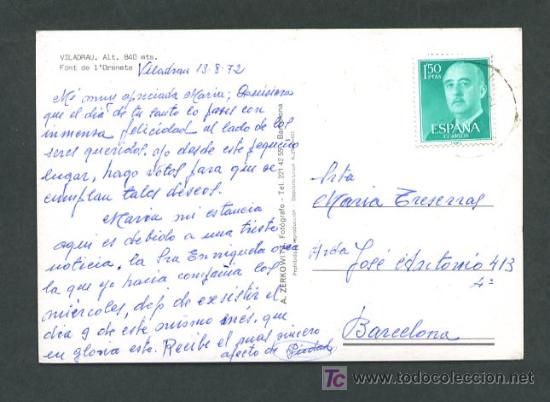 VILADRAU. Alt. 840 mts.
Font de l'Oreneta
Viladrau 13-8-72
Mi muy apreciada Maria; Quisiera
que el día de tu santo lo pases con
inmensa felicidad al lado de los
seres queridos. Yo desde este pequeño
lugar, hago votos para que se
cumplan tales deseos.
Maria mi estancia
aqui es debido a una triste
noticia, la Sra Enriqueta
la que yo hacia compañia los
miércoles, dejó de existir el
día 9 de este mismo mes, que
en gloria este. Recibe el mas sincero
afecto de Piedad
A. ZERKOWITZ - Fotógrafo - Tel. 221 42 55 - Barcelona
Prohibida la reproducción
1'50
PTAS
ESPAÑA
CORREOS
Srta
Maria Treserras
Avda José Antonio 413
4º
Barcelona
TC todocoleccion.net
www.todocoleccion.net